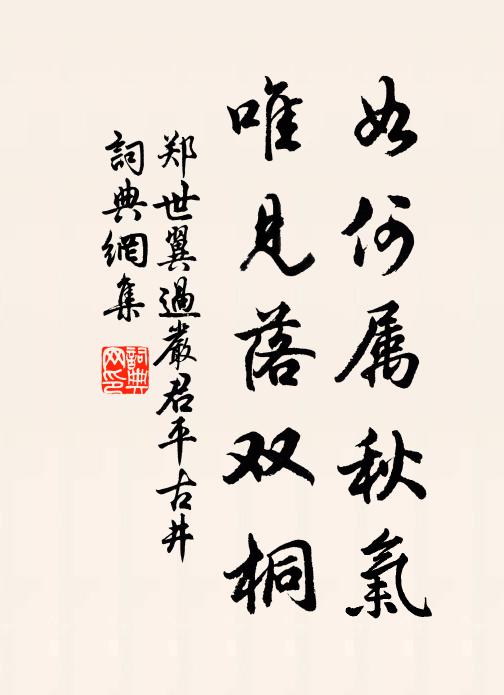 如何属秋氣
唯见落双桐
郑世翼過嚴君平古井
詞典網集
詞典网印